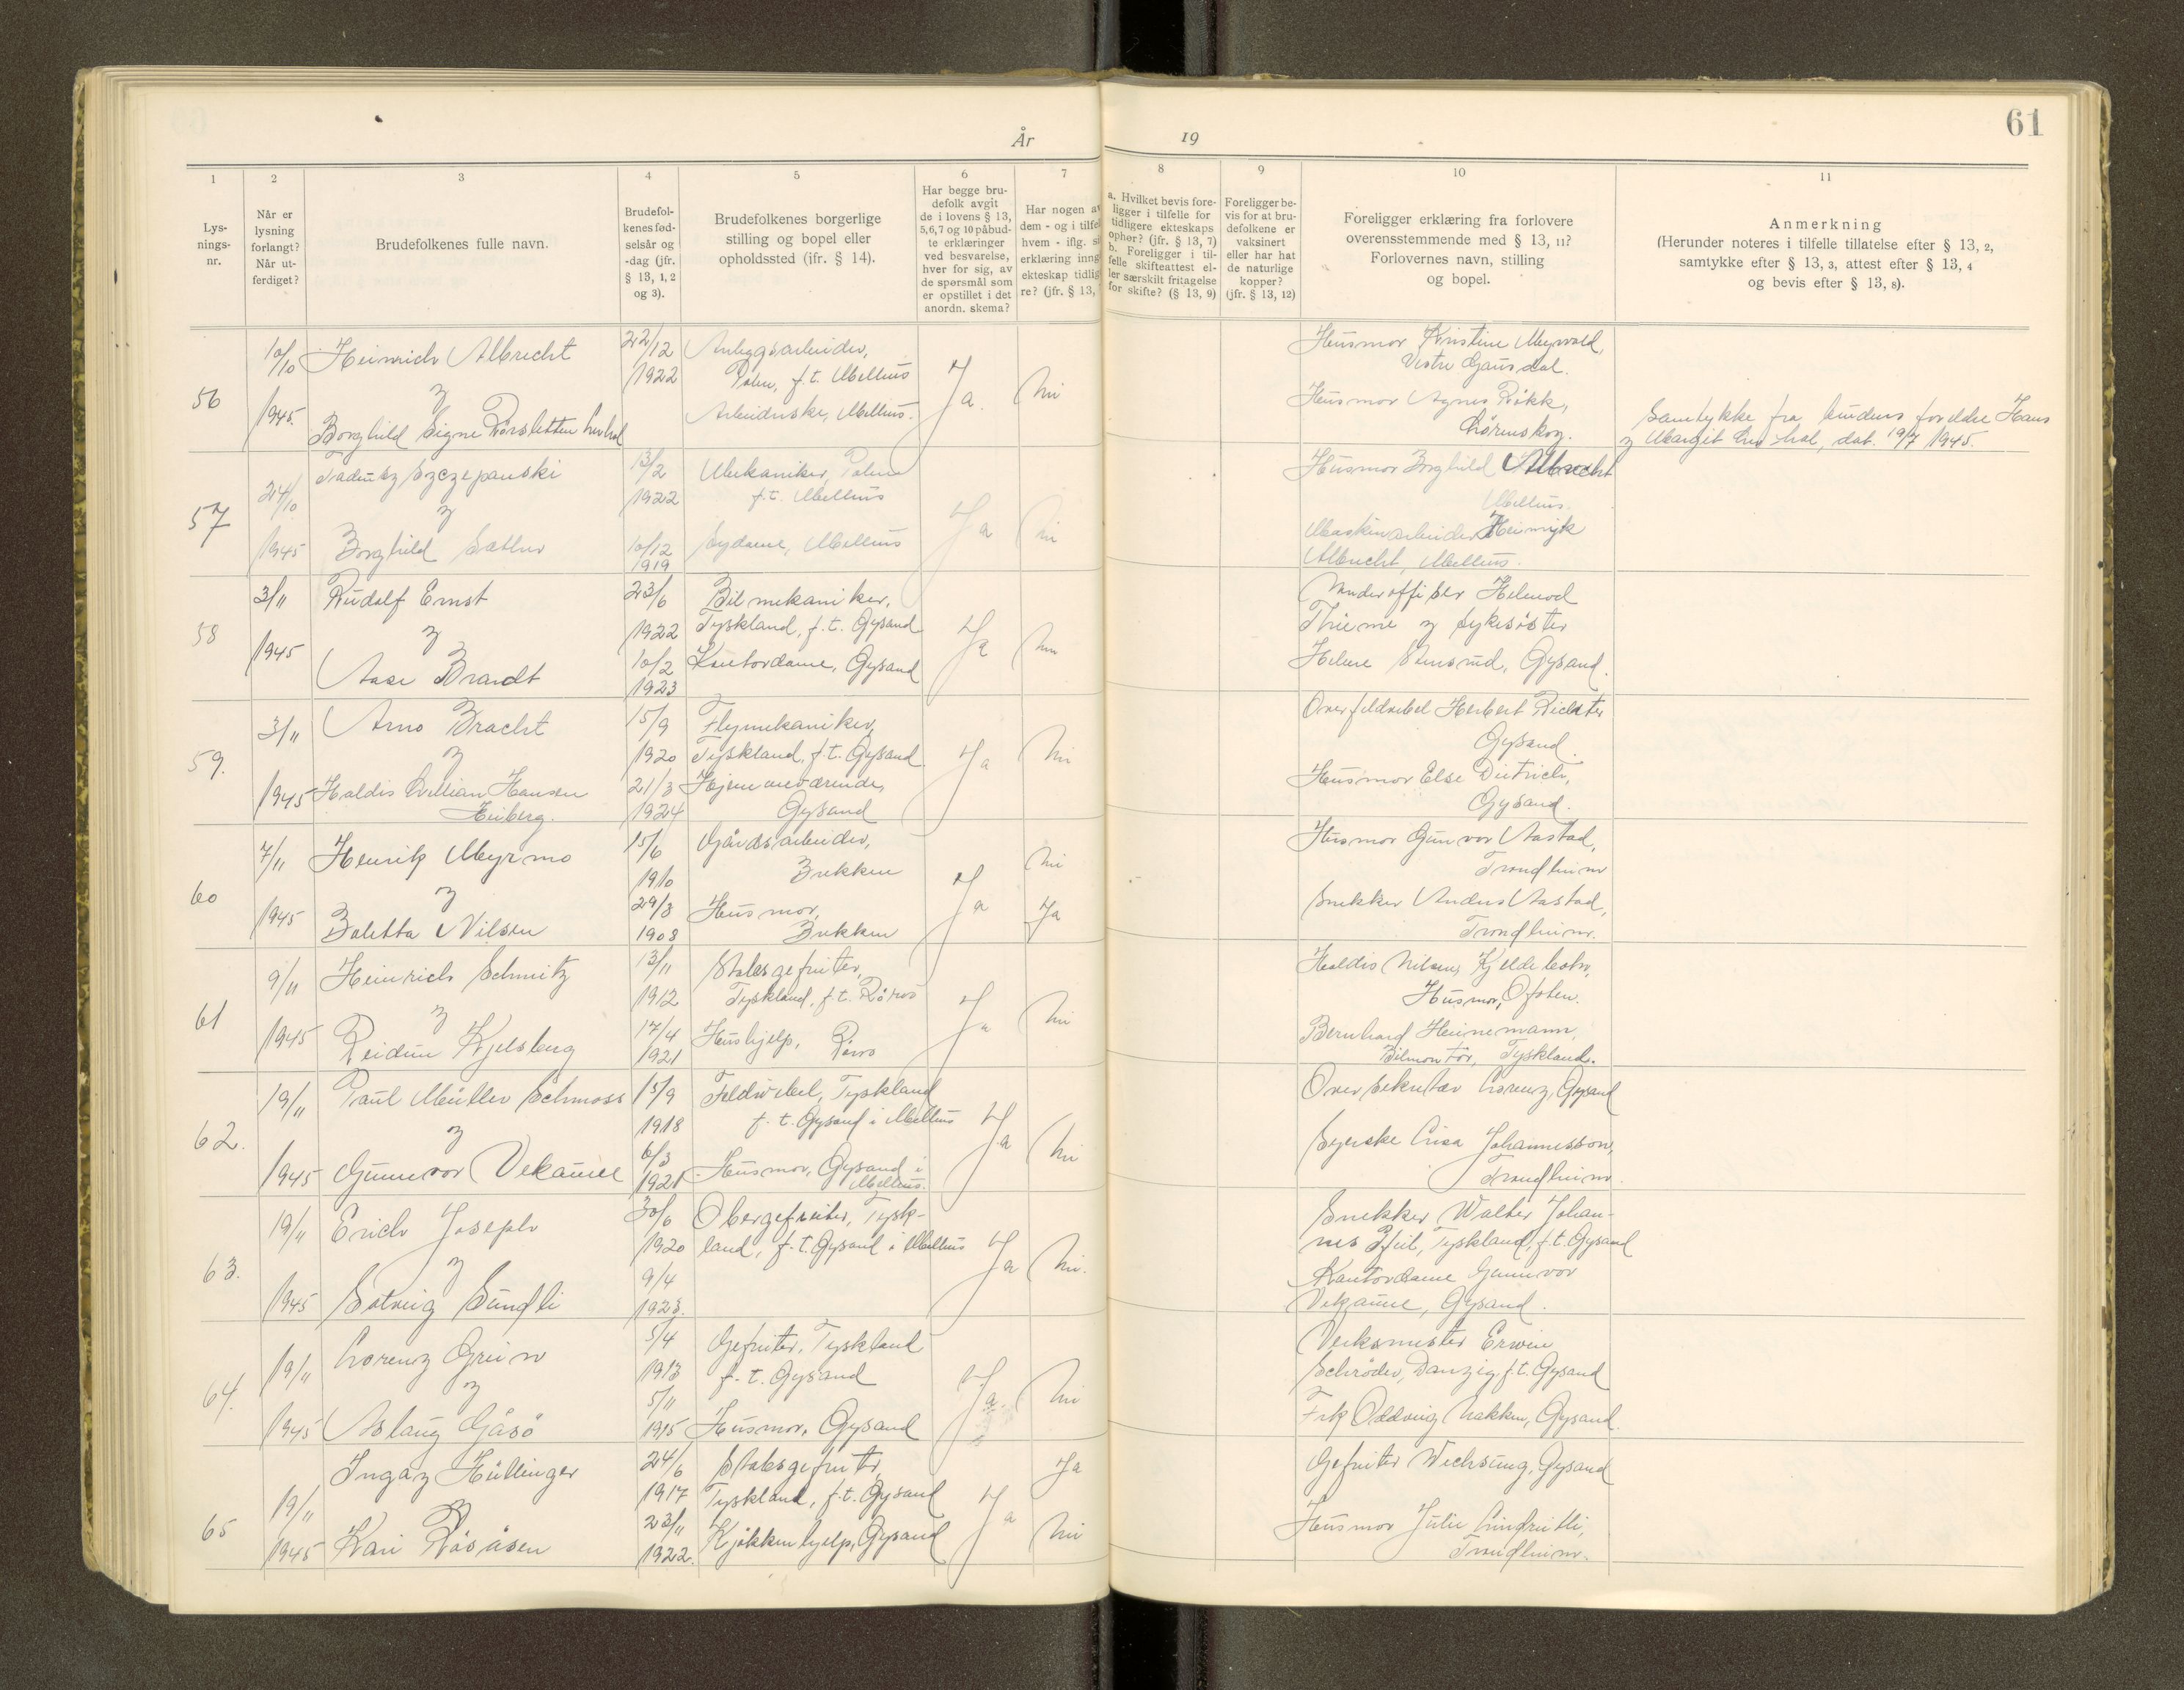 61
År 19
1 2 3 4 5 6 7 8 9 10 11
Lys-
nings-
nr.
Når er
lysning
forlangt?
Når ut-
ferdiget?
Brudefolkenes fulle navn.
Brudefol-
kenes fød-
selsår og
-dag (jfr.
§ 13, 1, 2
og 3).
Brudefolkenes borgerlige
stilling og bopel eller
opholdssted (ifr. § 14).
Har begge bru-
defolk avgit
de i lovens § 13,
5, 6, 7 og 10 påbud-
te erklæringer
ved besvarelse,
hver for sig, av
de spørsmål som
er opstillet i det
anordn. skema?
Har nogen a
dem - og i tilfe
hvem - iflg. s
erklæring inng
ekteskap tidlig
re? (jfr. § 13,
a. Hvilket bevis fore-
ligger i tilfelle for
tidligere ekteskaps
ophør? (jfr. § 13, 7)
b. Foreligger i til-
felle skifteattest el-
ler særskilt fritagelse
for skifte? (§ 13, 9)
Foreligger be-
vis for at bru-
defolkene er
vaksinert
eller har hat
de naturlige
kopper?
(jfr. § 13, 12)
Foreligger erklæring fra forlovere
overensstemmende med § 13, 11?
Forlovernes navn, stilling
og bopel.
Anmerkning
(Herunder noteres i tilfelle tillatelse efter § 13, 2,
samtykke efter § 13, 3, attest efter § 13, 4
og bevis efter § 13, 8).
56
10/10
1945.
Heinrich Albrecht
og
Borghild Signe Rørsletten
22/12
1922
Anleggsarbeider,
Polen, f.t. Melhus
Arbeiderske, Melhus.
Ja.
Nei
Husmor Kristine Myrvold,
Vestre Gausdal.
Husmor Agnes Røkk,
Lørenskog.
Samtykke fra brudens foreldre Hans
og Margit, dat. 19/7 1945.
57
24/10
1945
Tadeusz Szczepanski
og
Borghild Sæther
13/2
1922
10/12
1919
Mekaniker, Polen
f.t. Melhus
Sydame, Melhus
Ja
Nei
Husmor Borghild Albrecht
Melhus.
Maskinarbeider Heinrijk
Albrecht, Melhus.
58
3/11
1945
Rudolf Ernst
og
Aase Brandt
23/6
1922
10/2
1923
Bilmekaniker,
Tyskland, f.t. Øysand
Kontordame, Øysand
Ja
Nei
Underoffiser Helmod
Thieme og sykesøster
Helene Stensrud, Øysand.
59.
3/11
1945
Arno Bracht
og
Haldis Lillian Hansen
Heiberg.
15/9
1920
21/3
1924
Flymekaniker,
Tyskland, f.t. Øysand
Hjemmeværende,
Øysand
Ja
Nei
Overfeldvebel Herbert Richter
Øysand.
Husmor Else Dietrich,
Øysand.
60
7/11
1945
Henrik Myrmo
og
Boletta Nilsen
15/6
1910
29/3
1908
Gårdsarbeider,
Brekken
Husmor,
Brekken
Ja
Nei
Ja
Husmor Gunvor Aastad,
Trondheim
Snekker Anders Aastad,
Trondheim.
61
9/11
1945
Heinrich Schmitz
og
Reidun Kjelsberg
13/11
1912
17/4
1921
Stabsgefreiter,
Tyskland, f.t. Røros
Hushjelp, Røros
Ja
Nei
Haldis Nilsen,
Husmor, Ofoten.
Bernhard Heinemann,
Bilmontør, Tyskland.
62.
19/11
1945
Paul Müller Schmoss
og
Gunnvor Vekaune
15/9
1918
6/3
1921
Feldwebel, Tyskland
f. t. Øysand i Melhus
Husmor, Øysand i
Melhus.
Ja
Nei
Oversekretær Lorenz, Øysand
Syerske Lisa Johannesson,
Trondheim.
63.
19/11
1945
Erich Joseph
og
Solveig Sundli
30/6
1920
9/4
1923.
Obergefreiter, Tysk-
land, f.t. Øysand i Melhus
Ja
Nei.
Snekker Walter Johan-
nes Pfeil, Tyskland, f.t. Øysand
Kontordame Gunnvor
Vekaune, Øysand.
64.
19/11
1945
Lorenz Greim
og
Aslaug Gåsø
5/4
1913
5/11
1915
Gefreiter, Tyskland
f. t. Øysand
Husmor, Øysand
Ja.
Nei
Verksmester Erwin
Schrøder, Danzig, f.t. Øysand
Frk Oddveig Løkken, Øysand.
65
19/11
1945
Ingaz Hüllinger
og
Kari Råsåsen
24/6
1917
23/11
1922.
Stabsgefreiter,
Tyskland, f.t. Øysand
Kjøkkenhjelp, Øysand
Ja
Ja
Nei
Gefreiter Wechsung, Øysand
Husmor Julie,
Trondheim.